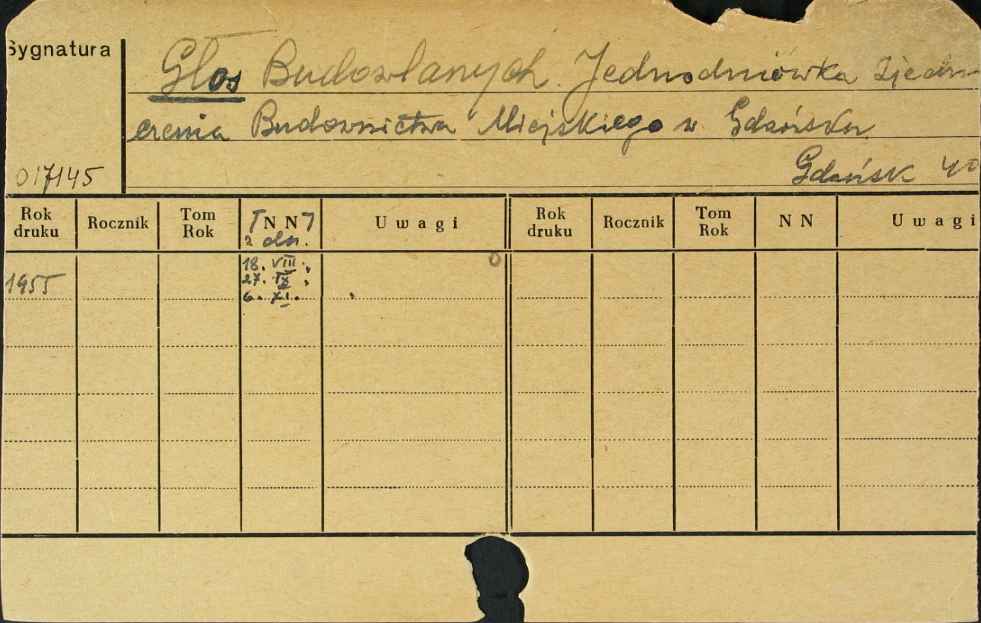 Sygnatura
Głos Budowlanych. Jednodniówka Zjedno
czenia Budownictwa Miejskiego w Gdańsku
Gdańsk 40
017145
Rok druku Rocznik Tom Rok [NN] Uwagi Rok druku Rocznik Tom Rok NN Uwagi
z dn.
18. VIII.,
1955 27. IX,
6. XI.